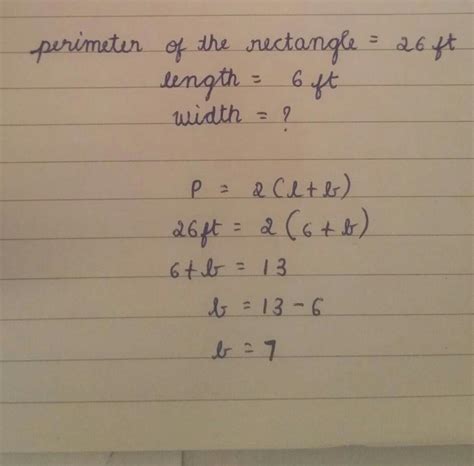 perimeter of the rectangle = 26 ft
length = 6 ft
width = ?
P = 2(l+b)
26ft = 2(6+b)
6+b = 13
b = 13-6
b = 7